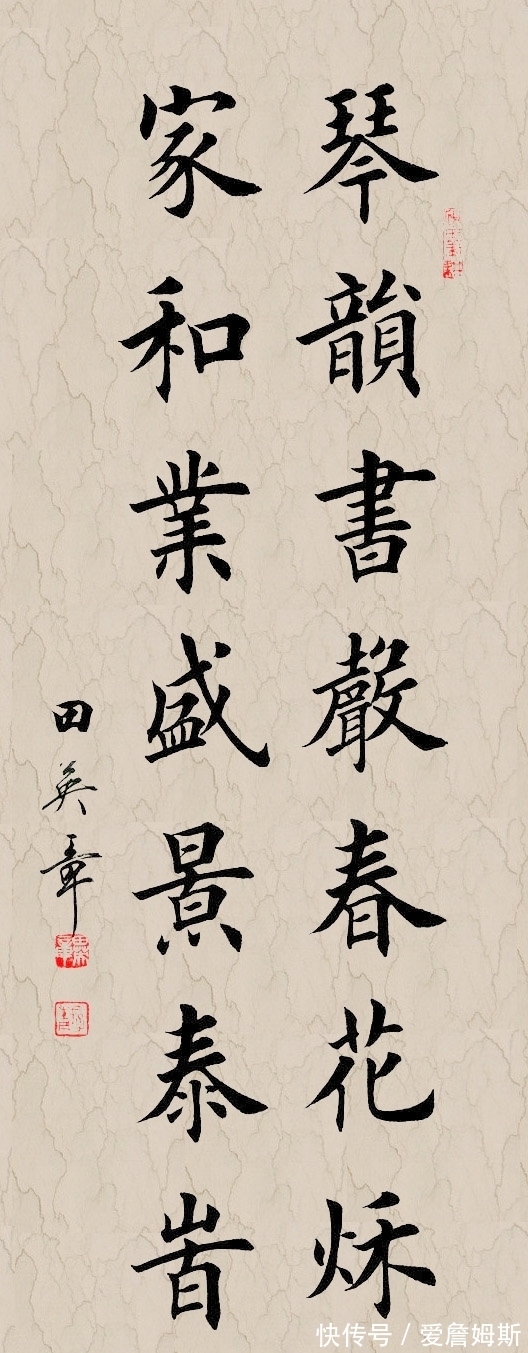 琴韻書聲春花秌
家和業盛景泰旹
田英章
快传号 / 爱詹姆斯